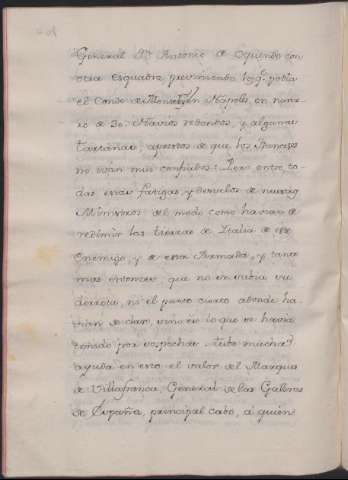 General Dn. Antonio de Oquendo con
otra esquadra previniendo lo q.e podia
el Conde de Monterrey en Napoles, en nume
ro de 30. Navios redondos, y algunas
Tartanas, aprestos de que los Franceses
no ivan mui confiados: Pero entre to-
das estas fatigas, y desvelos de nuestros
Ministros del modo como havian de
redimir las tierras de Italia de este
Enemigo, y de esta Armada, y tanto
mas entonces que no se sabia su
derrota, ni el puerto cierto adonde ha
vian de dar, vino en lo que se havia
tenido por sospecha. Tubo mucha
ayuda en esto el valor del Marques
de Villafranca, General de las Galeras
de España, principal cabo, a quien